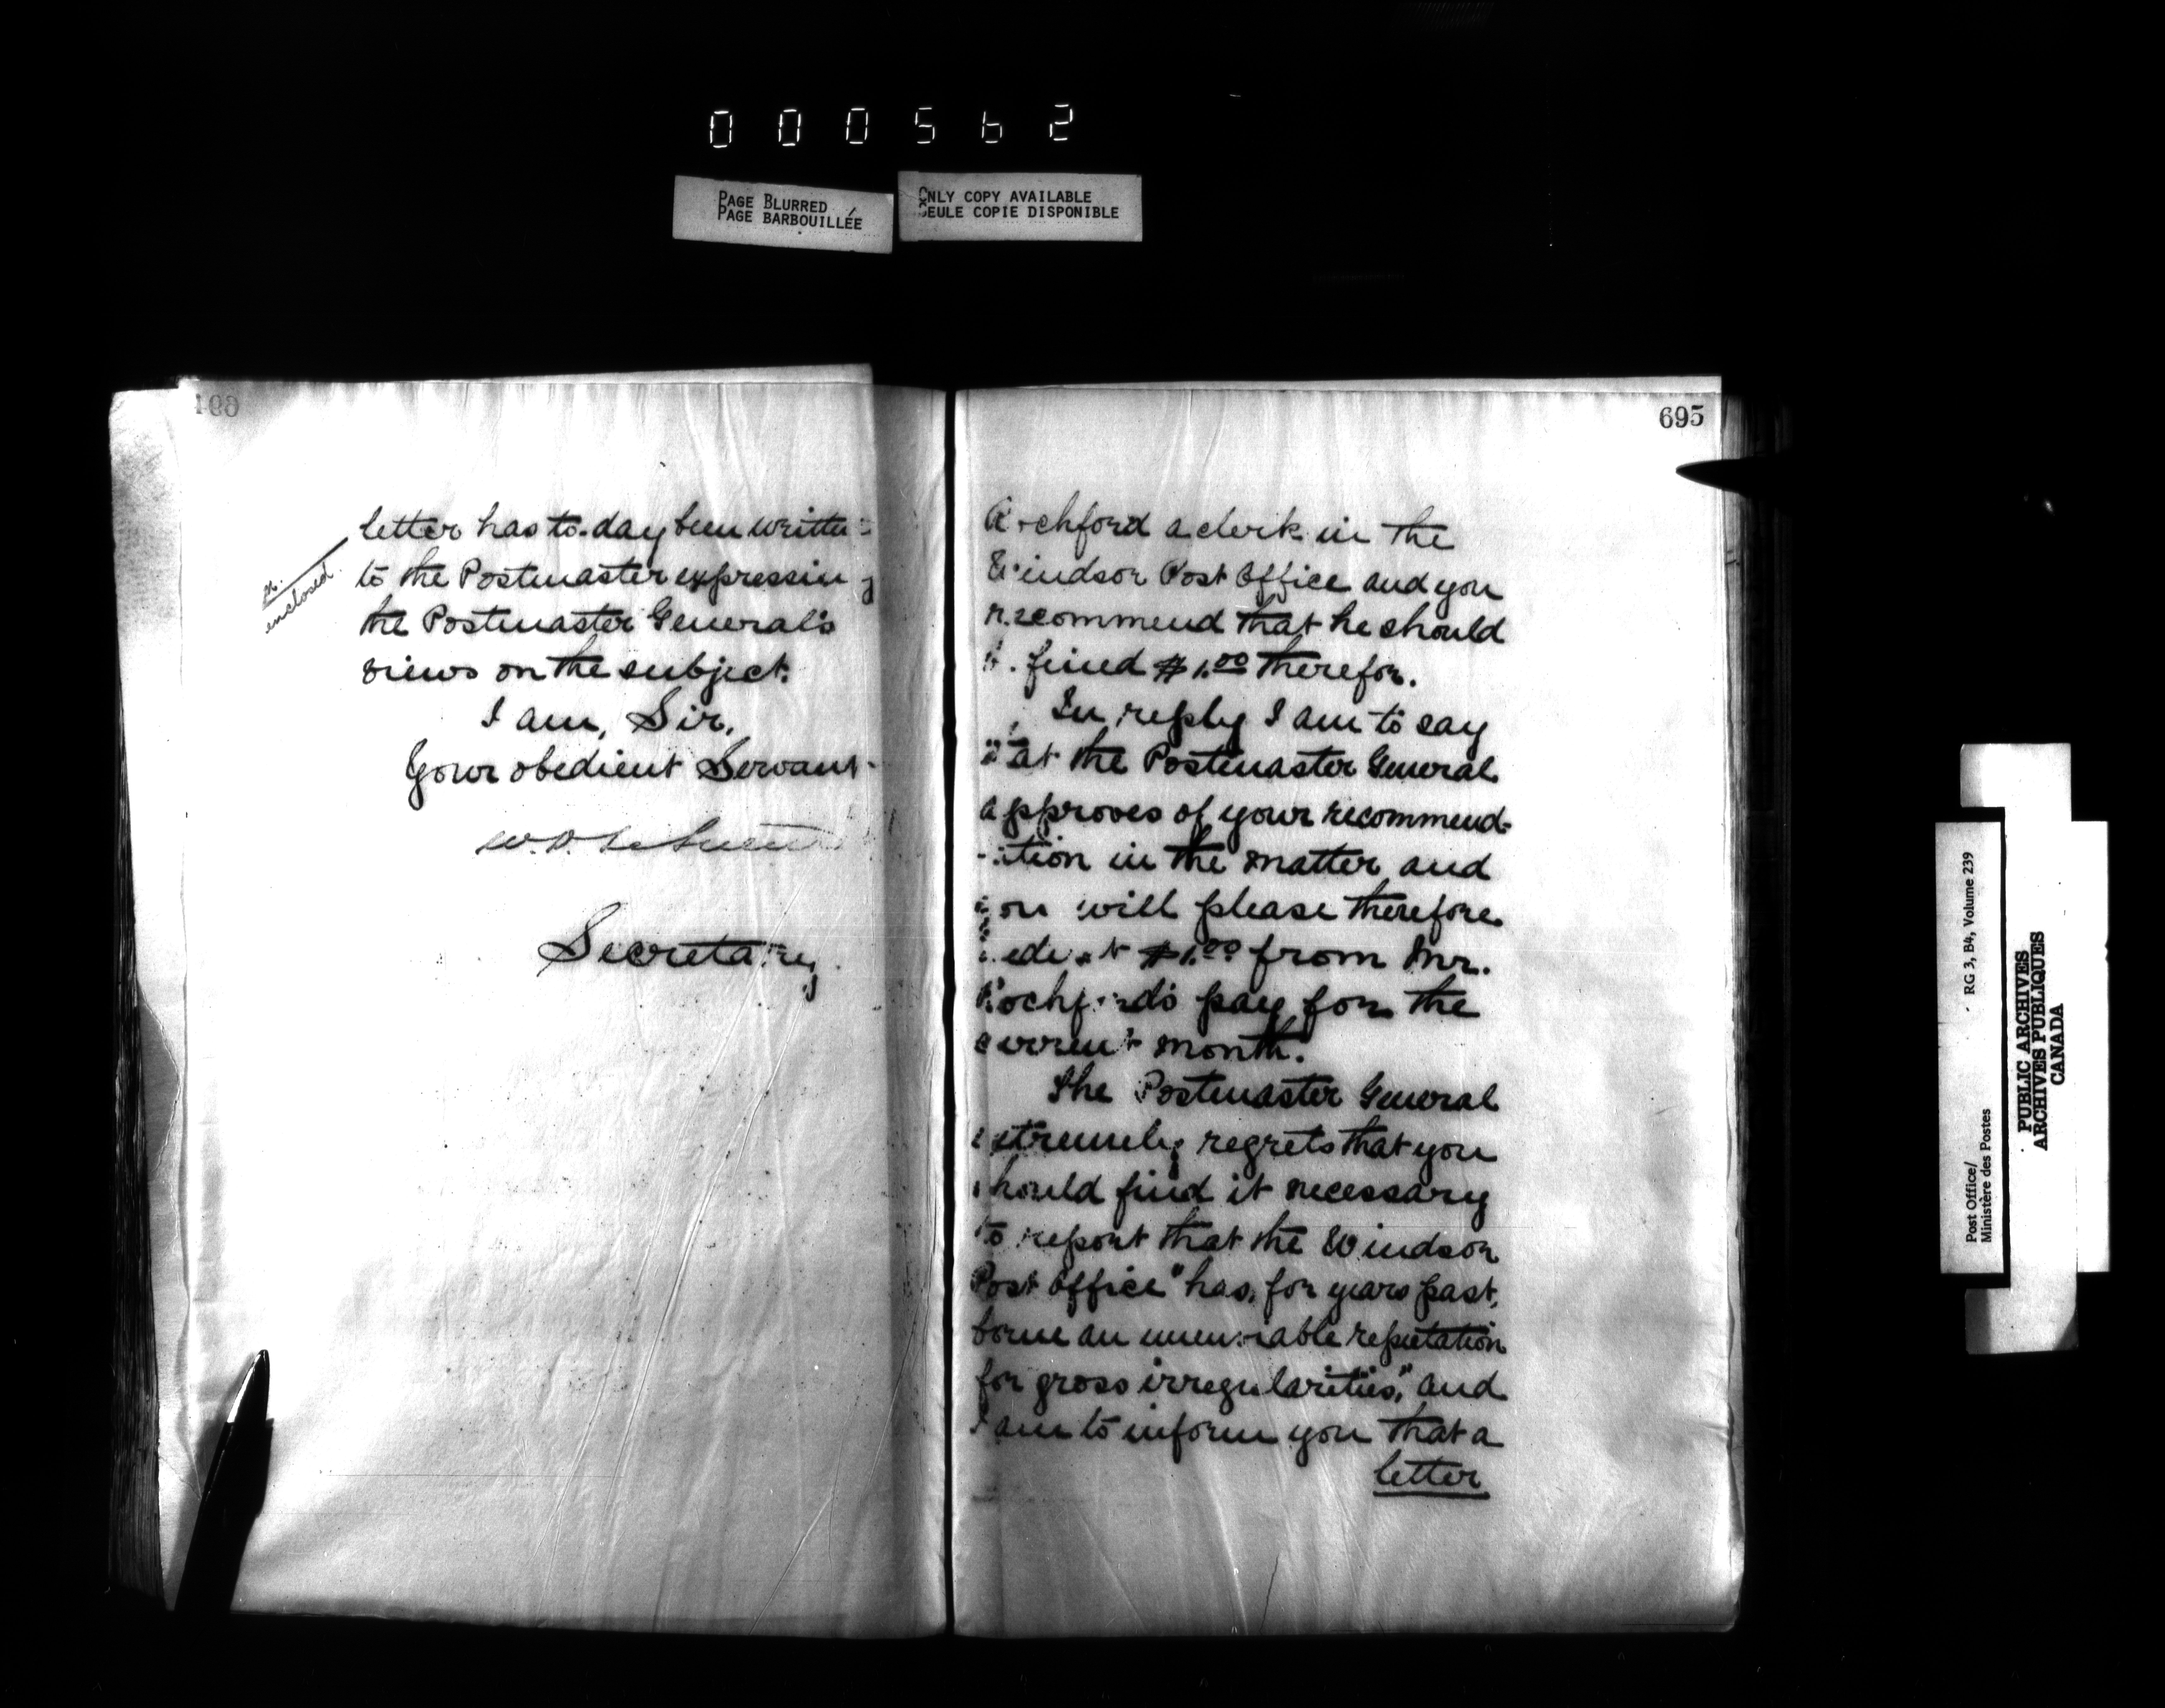 000562
PAGE BLURRED
PAGE BARBOUILLÉE
ONLY COPY AVAILABLE
SEULE COPIE DISPONIBLE
letter has to-day been written
to the Postmaster expressing
the Postmaster General's
views on the subject.
I am, Sir,
Your obedient Servant
Secretary
enclosed.
695
Rochford a clerk in the
Windsor Post Office and you
recommend that he should
be fined $1.00 therefor.
In reply I am to say
that the Postmaster General
approves of your recommend-
-ation in the matter and
you will please therefore
deduct $1.00 from Mr.
Rochford's pay for the
current month.
The Postmaster General
extremely regrets that you
should find it necessary
to report that the Windsor
Post Office "has, for years past,
borne an unenviable reputation
for gross irregularities," and
I am to inform you that a
letter
Post Office/
Ministère des Postes
RG 3, B4, Volume 239
PUBLIC ARCHIVES
ARCHIVES PUBLIQUES
CANADA